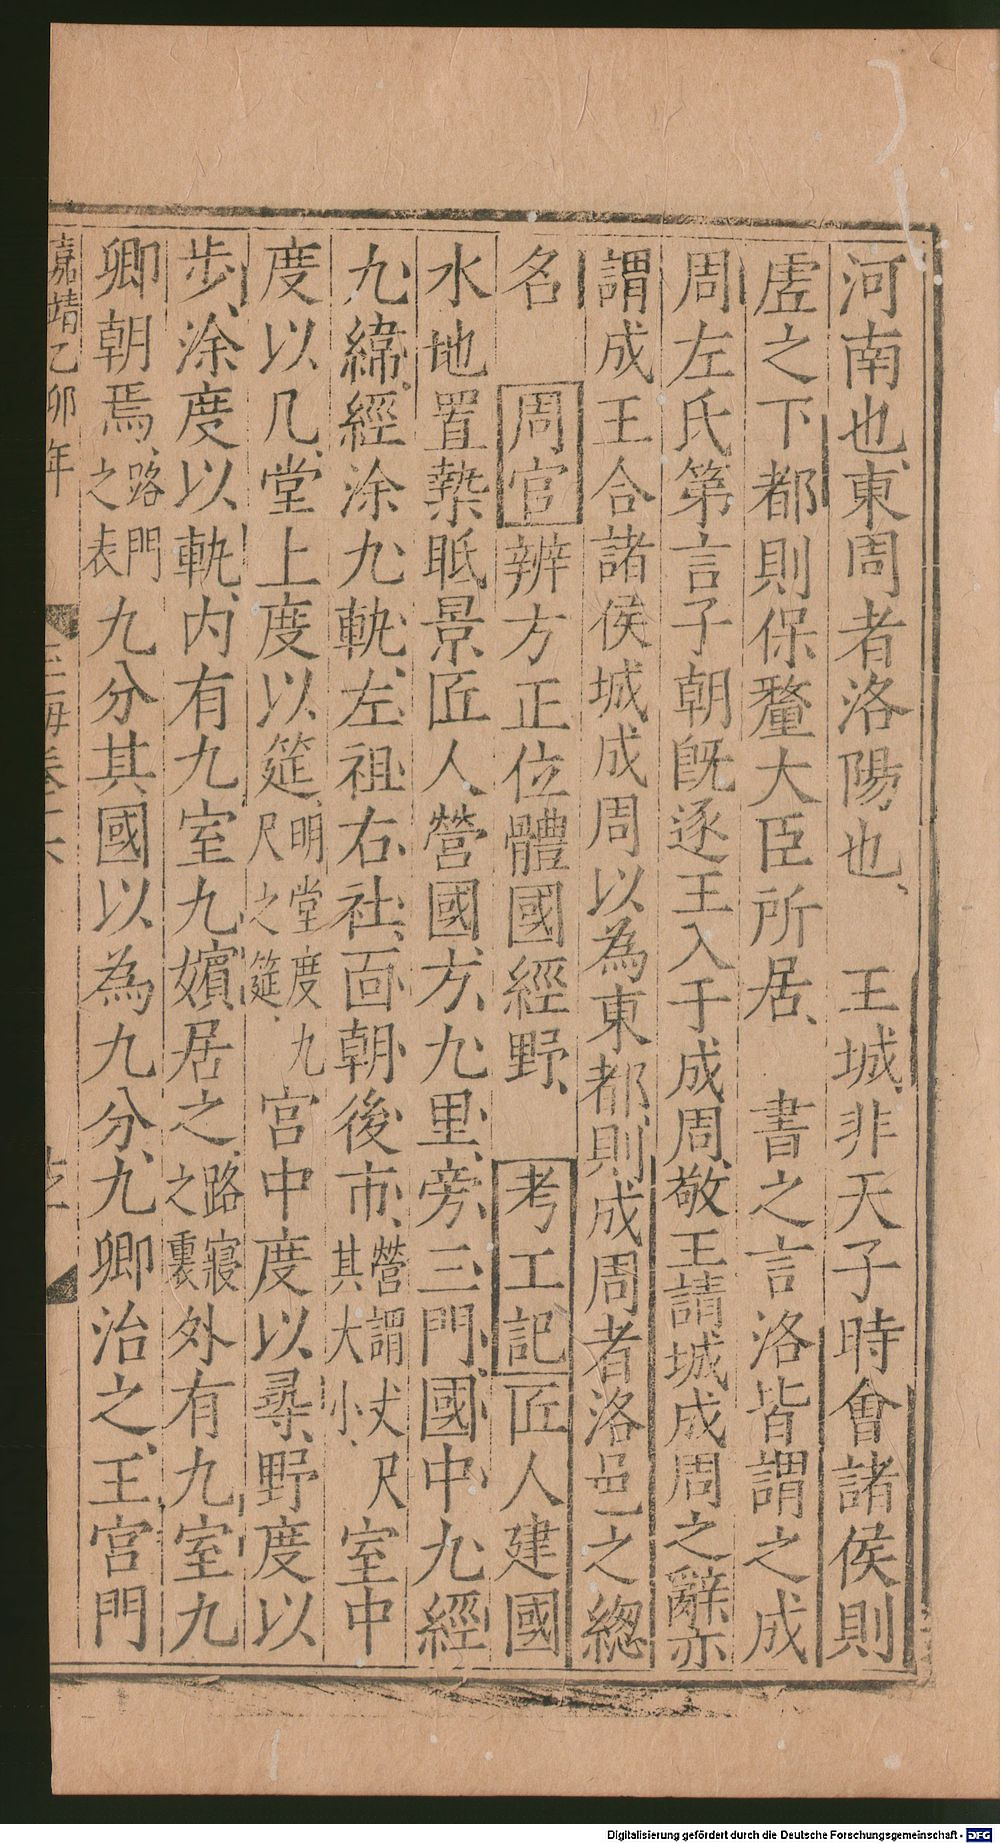 河南也東周者洛陽也、王城非天子時會諸侯則
虗之下都則保釐大臣所居、書之言洛皆謂之成
周左氏第言子朝旣逐王入于成周敬王請城成周之辭亦
謂成王合諸侯城成周以為東都則成周者洛邑之緫
名 周官辨方正位體國經野、考工記匠人建國
水地置槷眡景匠人營國方九里旁三門國中九經
九緯經涂九軌左祖右社面朝後市營謂丈尺其大小室中
度以几堂上度以筵明堂度九尺之筵宫中度以尋野度以
步涂度以軌内有九室九嬪居之路寢之裏外有九室九
卿朝焉路門之表九分其國以為九分九卿治之王宫門
嘉靖乙卯年
玉海卷
Digitalisierung gefördert durch die Deutsche Forschungsgemeinschaft - DFG